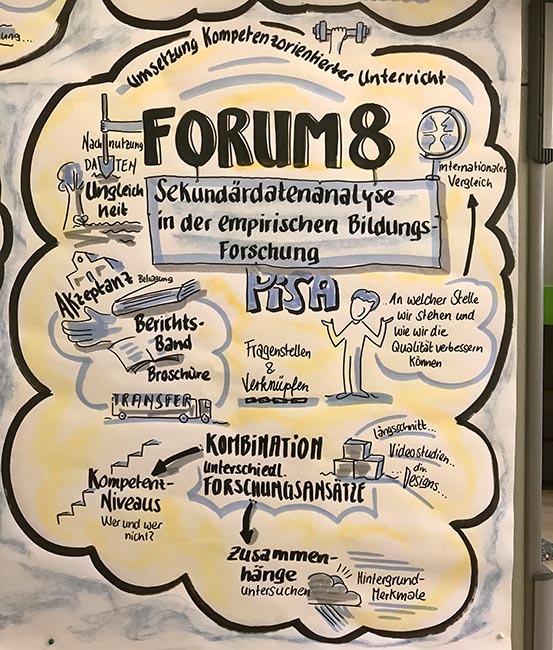 ung...
Umsetzung Kompetenzorientierter Unterricht
FORUM 8
Nachnutzung
DATEN
Ungleich
heit
Internationaler
Vergleich
Sekundärdatenanalyse
in der empirischen Bildungs-
Forschung
PISA
Akzeptanz
Berichts-
Band
Broschüre
An welcher Stelle
wir stehen und
wie wir die
Qualität verbessern
können
Fragenstellen
&
Verknüpfen
TRANSFER
KOMBINATION
unterschiedl.
FORSCHUNGSANSÄTZE
Längsschnitt...
Videostudien..
div.
Designs...
Kompetent-
Niveaus
Wer und wer
nicht?
Zusammen-
hänge
untersuchen
Hintergrund-
Merkmale